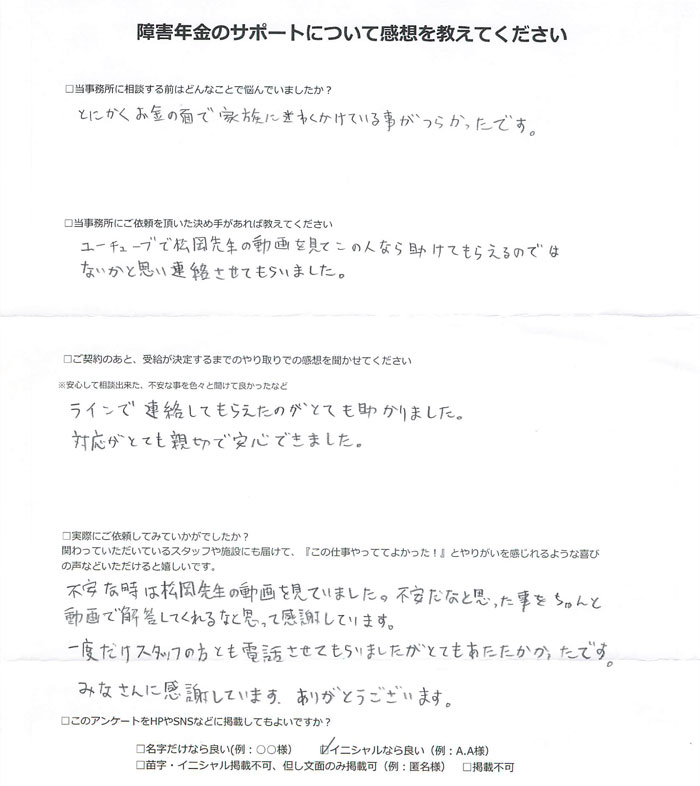 障害年金のサポートについて感想を教えてください
□当事務所に相談する前はどんなことで悩んでいましたか？
とにかくお金の面で家族に迷わくかけている事がつらかったです。
□当事務所にご依頼を頂いた決め手があれば教えてください
ユーチューブで松岡先生の動画を見てこの人なら助けてもらえるのでは
ないかと思い連絡させてもらいました。
□ご契約のあと、受給が決定するまでのやり取りでの感想を聞かせてください
※安心して相談出来た、不安な事を色々と聞けて良かったなど
ラインで連絡してもらえたのがとても助かりました。
対応がとても親切で安心できました。
□実際にご依頼してみていかがでしたか？
関わっていただいているスタッフや施設にも届けて、『この仕事やっててよかった！』とやりがいを感じれるような喜び
の声などいただけると嬉しいです。
不安な時は松岡先生の動画を見ていました。不安だなと思った事をちゃんと
動画で解答してくれるなと思って感謝しています。
一度だけスタッフの方とも電話させてもらいましたがとてもあたたかかったです。
みなさんに感謝しています。ありがとうございます。
□このアンケートをHPやSNSなどに掲載してもよいですか？
□名字だけなら良い(例：○○様） ☑イニシャルなら良い（例：A.A様）
□苗字・イニシャル掲載不可、但し文面のみ掲載可（例：匿名様） □掲載不可